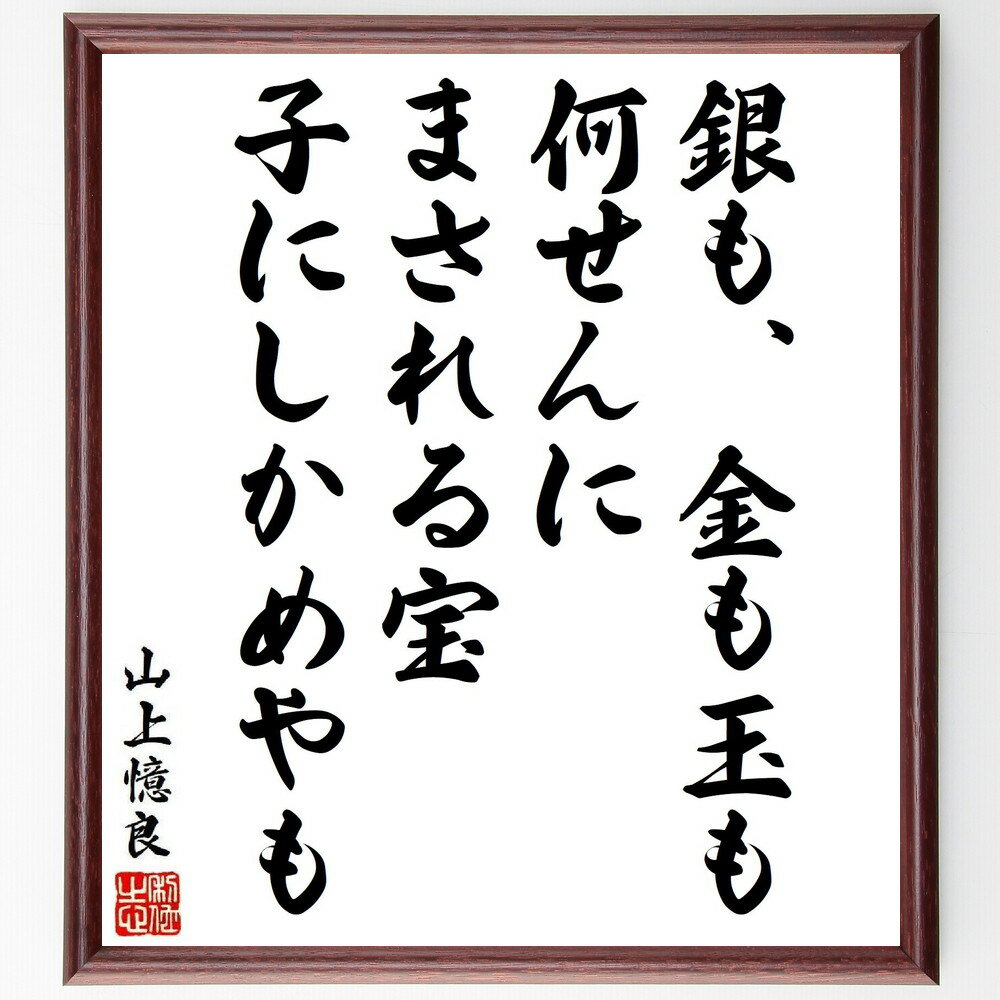 銀も、　金も玉も
何せんに
まされる宝
子にしかめやも
山上憶良